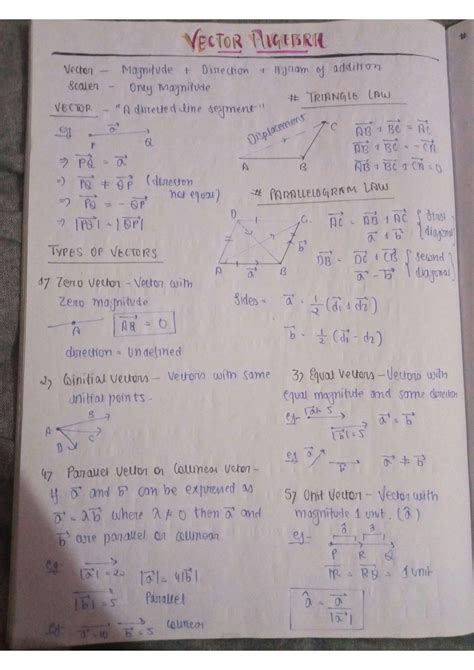 VECTOR ALGEBRA
Vector – Magnitude + Direction + llgram of addition
Scalar – Only Magnitude
VECTOR – "A directed line segment"
eg a
P Q
⇒ PQ = a
⇒ PQ ≠ QP (direction not equal)
⇒ PQ = - QP
⇒ |PQ| = |QP|
# TRIANGLE LAW
Displacement
A B C
AB + BC = AC
AB + BC = - CA
AB + BC + CA = 0
# PARALLELOGRAM LAW
D C
A a B b
AC = AB + AC { first
a + b diagonal
DB = DC + CB { second
a - b diagonal
Sides = a = 1/2 (d1 + d2)
b = 1/2 (d1 - d2)
TYPES OF VECTORS
1) Zero Vector – Vector with
zero magnitude
A AA = 0
direction = Undefined
2) Qinitial Vectors – Vectors with same
initial points.
A B C D
3) Equal Vectors – Vectors with
equal magnitude and same direction
eg |a|= 5 a = b
|b| = 5
eg a b a ≠ b
4) Parallel Vector or Collinear Vector –
If a and b can be expressed as
a = λb where λ ≠ 0 then a and
b are parallel or collinear
eg |a| = 20 |a| = 4|b|
|b| = 5 Parallel
eg a=10 b=5 collinear
5) Unit Vector – Vector with
magnitude 1 unit. (â)
eg- â â
P R Q
PR = RQ = 1 unit
â = a / |a|